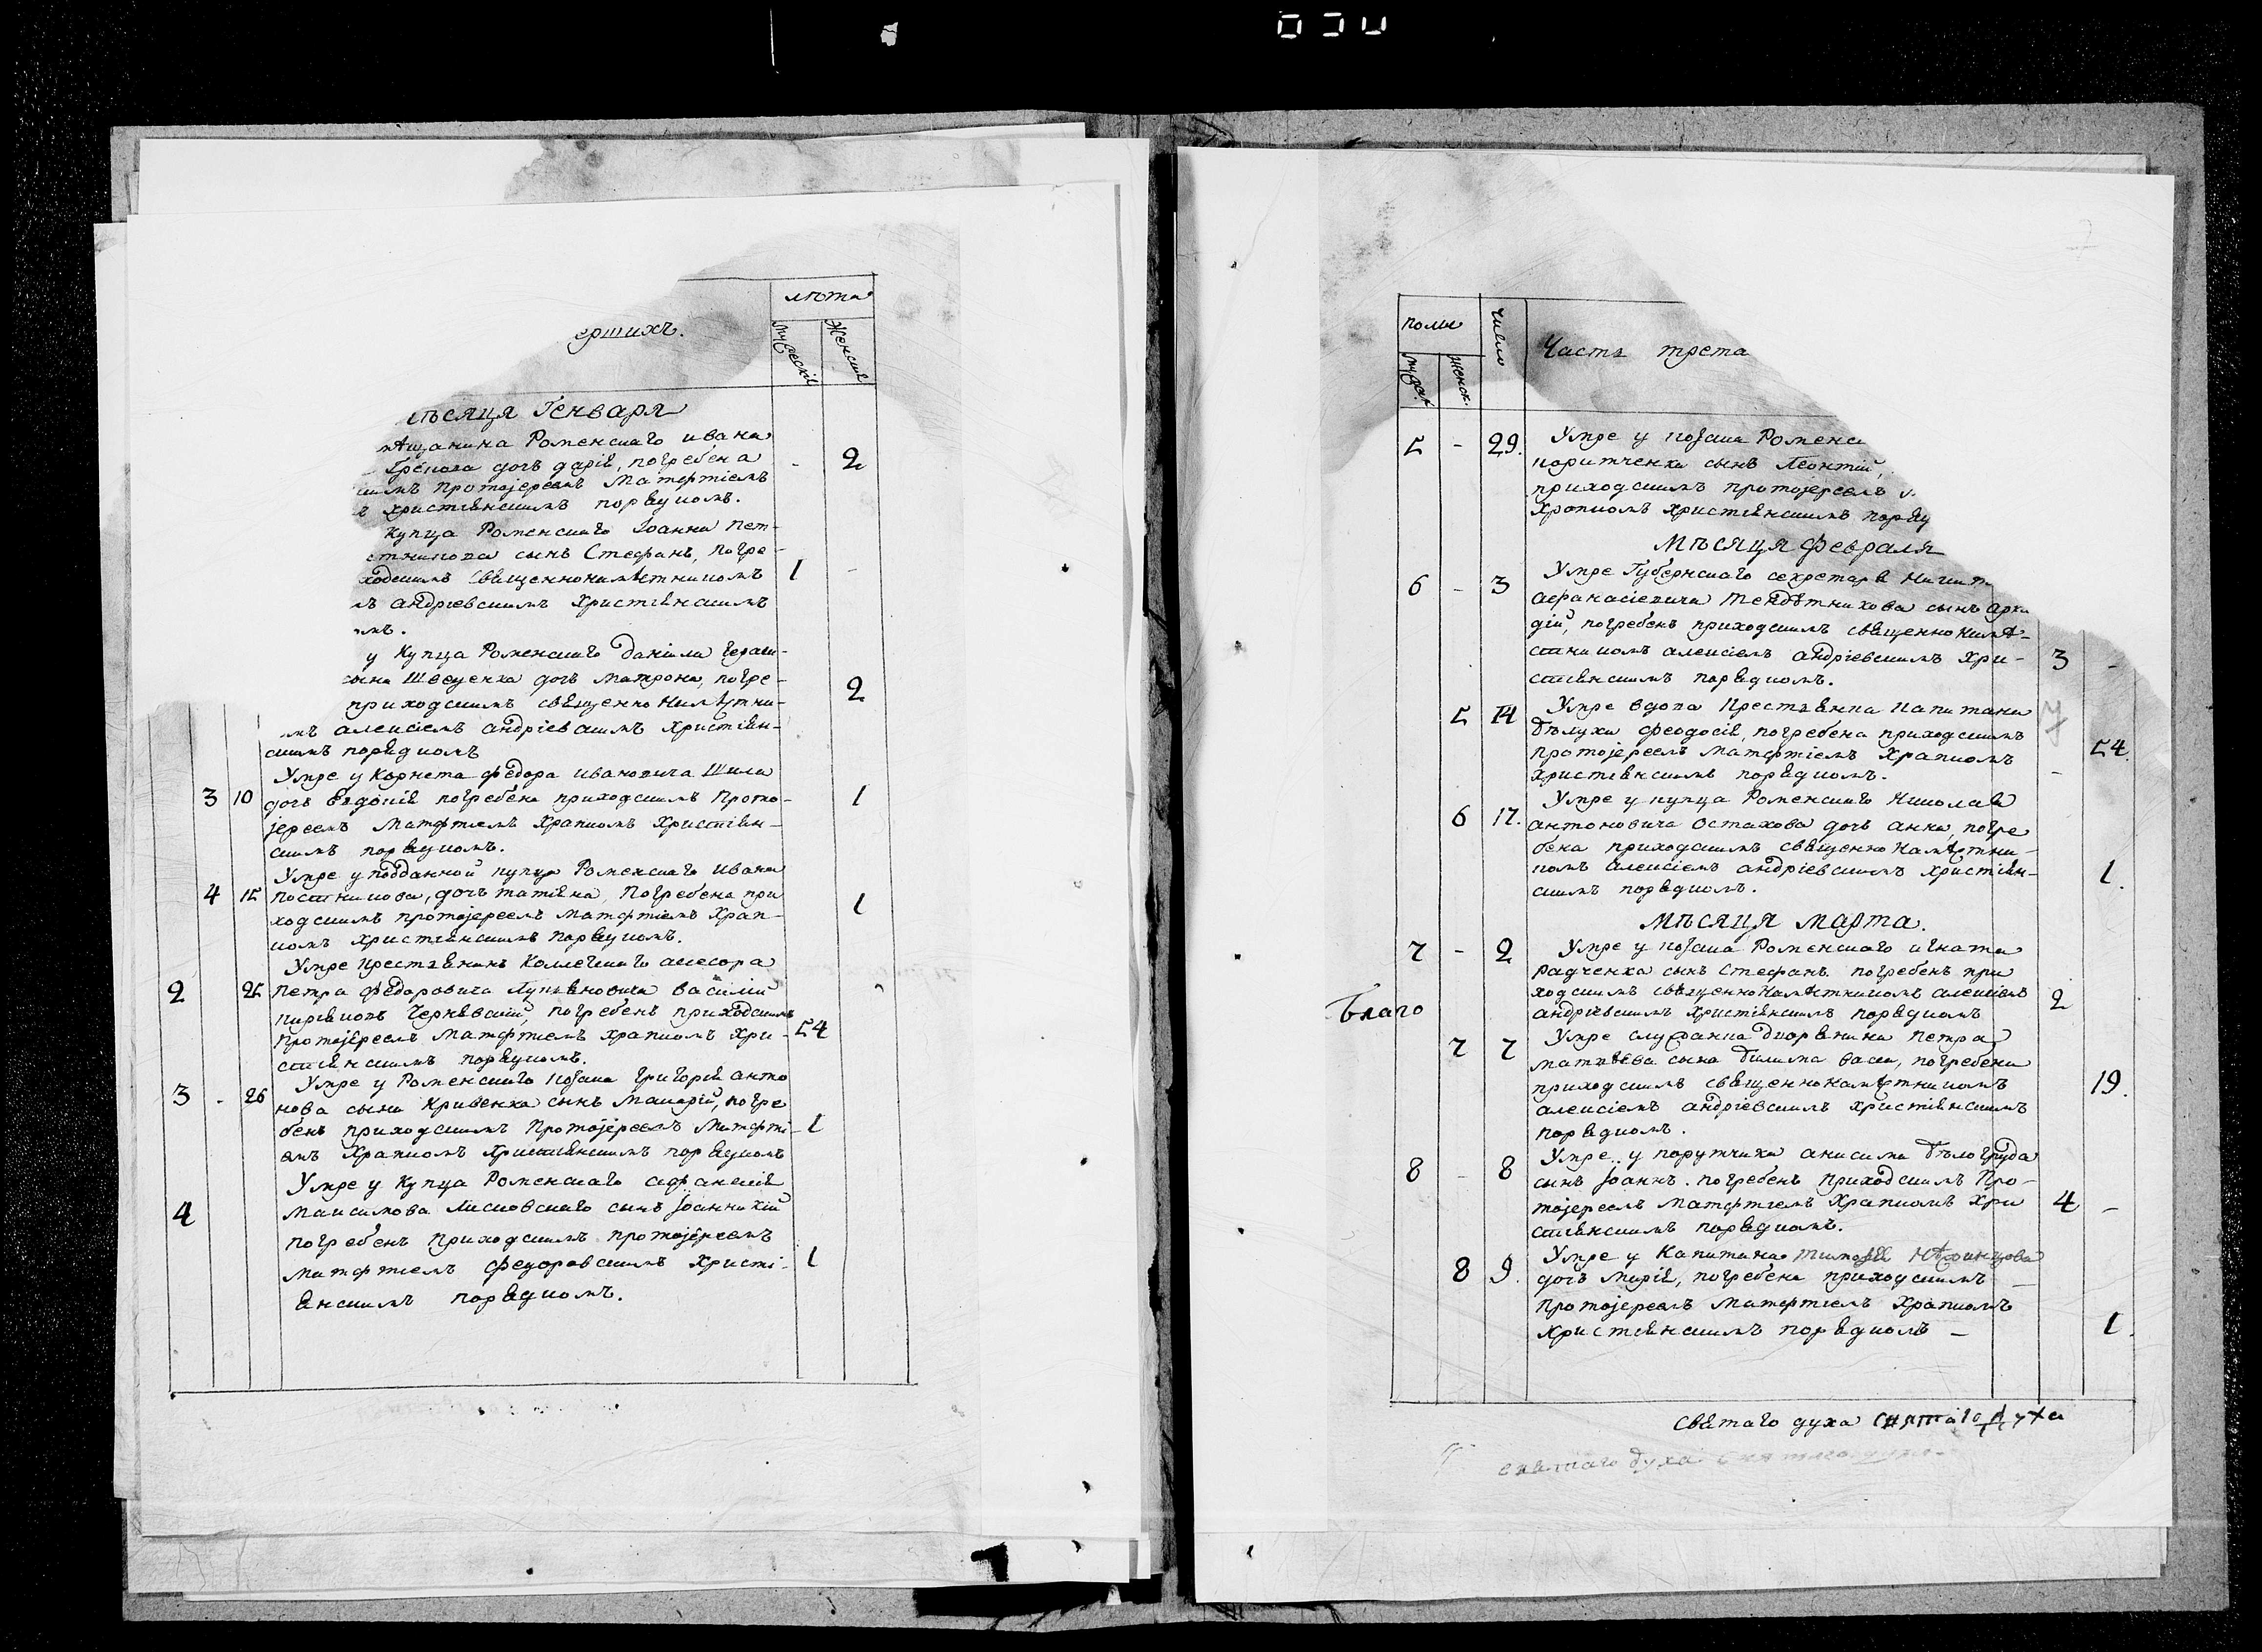 лѣта
ершихъ.
мужескїй
Женскїй
мѣсяця Генваря
мѣщанина Роменскаго ивана
дочъ дарїя, погребена
скимъ протоїереемъ Матфїемъ
христїянскимъ порядкомъ.
- 2
Купца Роменскаго Іоанна Пет-
сынъ Стефанъ, погре-
ходскимъ священнонамѣстникомъ
1 -
мъ андрїевскимъ христїянскимъ
омъ.
у Купца Роменскаго данїила Гераси-
сына Шевченка дочъ матрона, погре-
приходскимъ священно намѣстни-
2
мъ алексїемъ андрїевскимъ христїян-
скимъ порядкомъ
Умре у Корнета федора ивановича Шила
3 10 дочъ Евдокїя погребена приходскимъ Прото- 1
їереемъ Матфїемъ Храпкомъ Христїян-
скимъ порядкомъ.
Умре у подданной купця Роменскаго ивана
4 15 постникова, дочъ татїяна, погребена при
ходскимъ протоїереемъ матфїемъ Храп- 1
комъ христїянскимъ порядкомъ.
Умре преставникъ Коллежскаго асесора
2 25 петра федоровича василїй
Чернявскїй, погребенъ приходскимъ
протоїереемъ Матфїемъ храпкомъ Хри- 54
стїянскимъ порядкомъ.
Умре у Роменскаго козака григорїя анто
3 - 26 нова сына Кривенка сынъ Макарїй, погре
бенъ приходскимъ Протоїереемъ Матфї- 1
емъ Храпкомъ Христїянскимъ порядкомъ
Умре у Купца Роменскаго афанасїя
4 Максимова Лисовскаго сынъ Іоанникїй
погребенъ приходскимъ протоїереемъ
матфїемъ федоровскимъ Христї- 1
янскимъ порядкомъ.
полы
число
Часть трета
мужск.
женск.
5 - 29. Умре у козака Роменск
сынъ Леонтїй,
приходскимъ протоїереемъ м
Храпкомъ Христїянскимъ поряд
Мѣсяця февраля
6 - 3 Умре Губернскаго секретаря никит
афанасїевича сынъ арка
дїй, погребенъ приходскимъ священно намѣ-
стникомъ алексїемъ андрїевскимъ Хри- 3 -
стїянскимъ порядкомъ.
5 14 Умре вдова капитана
бѣлухи феодосїя, погребена приходскимъ
протоїереемъ матфїемъ Храпкомъ 54.
христїянскимъ порядкомъ. -
Умре у купца Роменскаго Николая
6 17. антоновича Остахова дочъ анна, погре
бена приходскимъ священно намѣстни-
комъ алексїемъ андрїевскимъ Христїян-
скимъ порядкомъ. 1.
Мѣсяця марта.
7 - 2 Умре у козака Роменскаго игната
Радченка сынъ Стефанъ погребенъ при
ходскимъ священнонамѣстникомъ алексїемъ 2
Благо
андрїевскимъ христїянскимъ порядкомъ
7 7 Умре служанка дворянина Петра
матвѣева сына васса, погребена
приходскимъ священнонамѣстникомъ 19.
алексїемъ андрїевскимъ христїянскимъ
порядкомъ.
Умре у порутчика анисима бѣлогруда
8 - 8 сынъ Іоаннъ. погребенъ приходскимъ Про-
тоїереемъ Матфїемъ Храпкомъ Хри 4 -
стїянскимъ порядкомъ.
Умре у Капитана
8 9. дочъ марїя, погребена приходскимъ -
протоїереемъ матфїемъ Храпкомъ
христїянскимъ порядкомъ - 1.
святаго духа святаго духа
святаго духа святаго духа